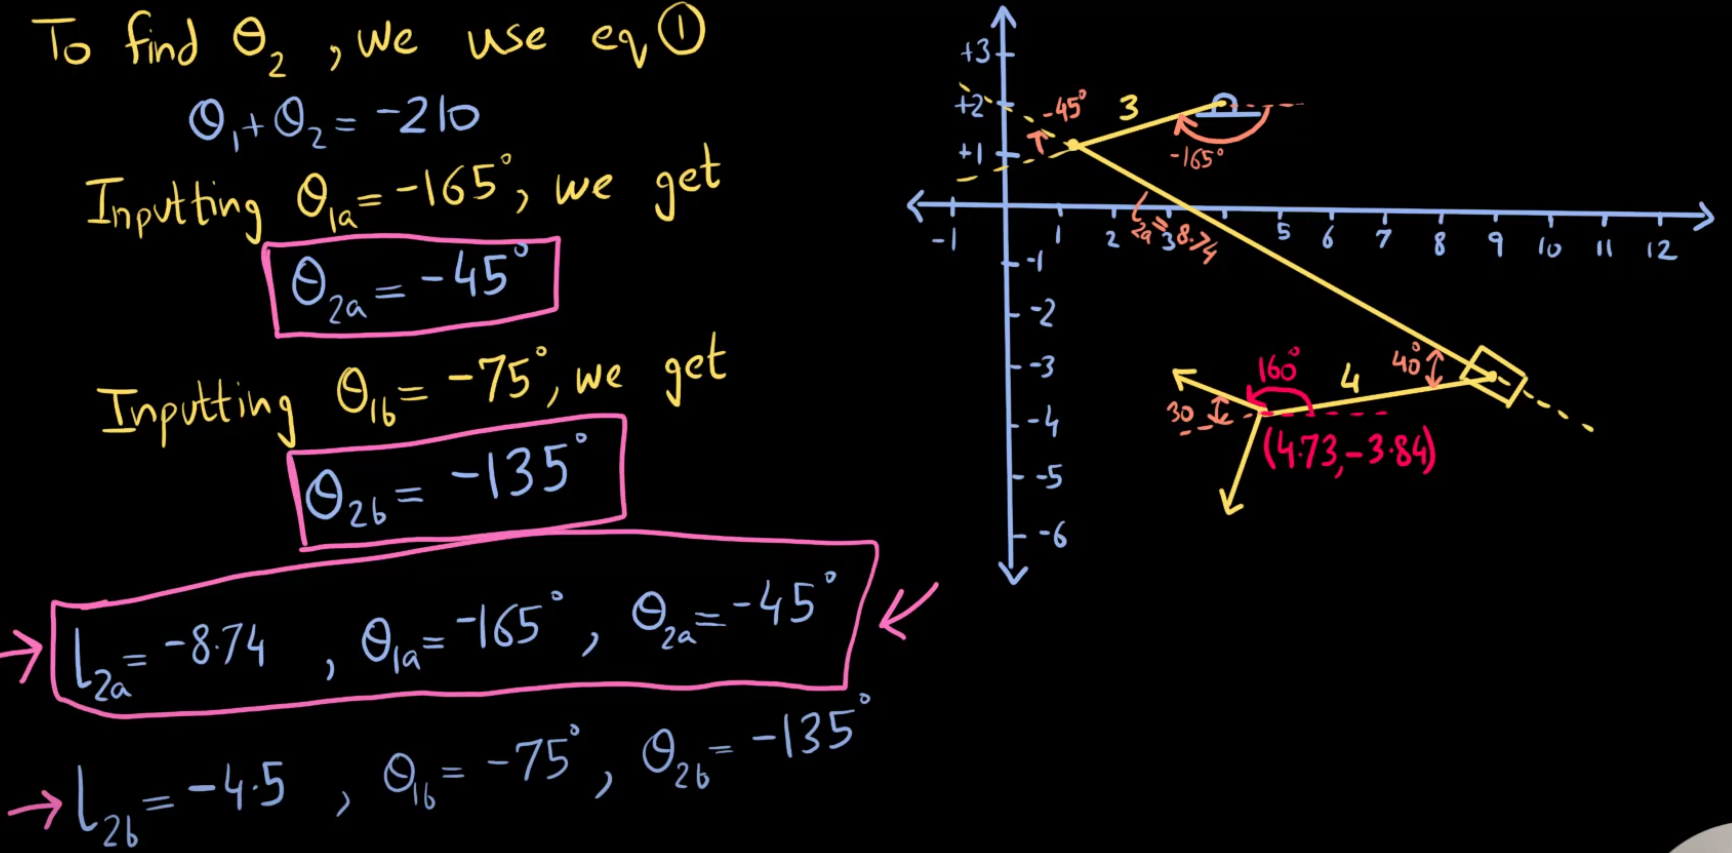 To find θ₂, we use eq ①
θ₁+θ₂ = -210
Inputting θ₁ₐ = -165°, we get
θ₂ₐ = -45°
Inputting θ₁b = -75°, we get
θ₂b = -135°
l₂ₐ = -8.74 , θ₁ₐ = -165° , θ₂ₐ = -45°
l₂b = -4.5 , θ₁b = -75° , θ₂b = -135°
+3
+2
+1
-45°
3
-165°
-1 1 2 3 5 6 7 8 9 10 11 12
l₂ₐ = 8.74
-1
-2
-3
-4
-5
-6
40°
160°
4
30
(4.73, -3.84)